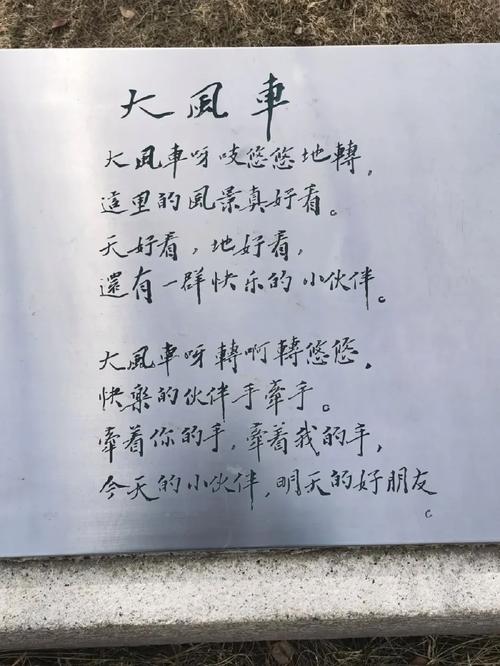 大風車
大風車呀吱悠悠地轉，
這里的風景真好看。
天好看，地好看，
還有一群快乐的小伙伴。
大風車呀轉啊轉悠悠，
快樂的伙伴手牽手。
牽着你的手，牽着我的手，
今天的小伙伴，明天的好朋友
。